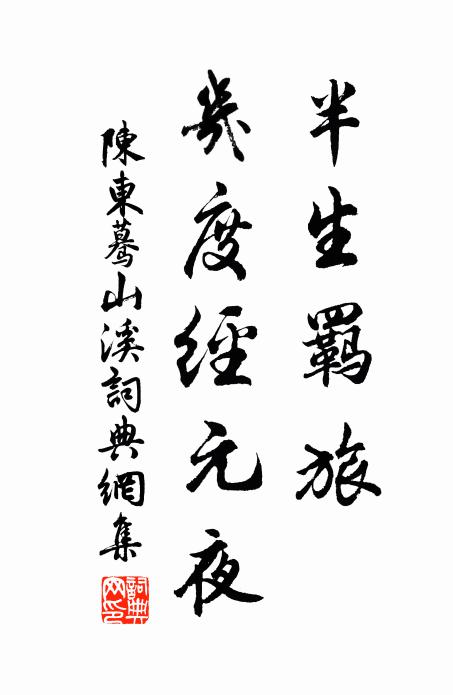 半生羇旅
幾度經元夜
陳東驀山溪詞典網集
詞典網印